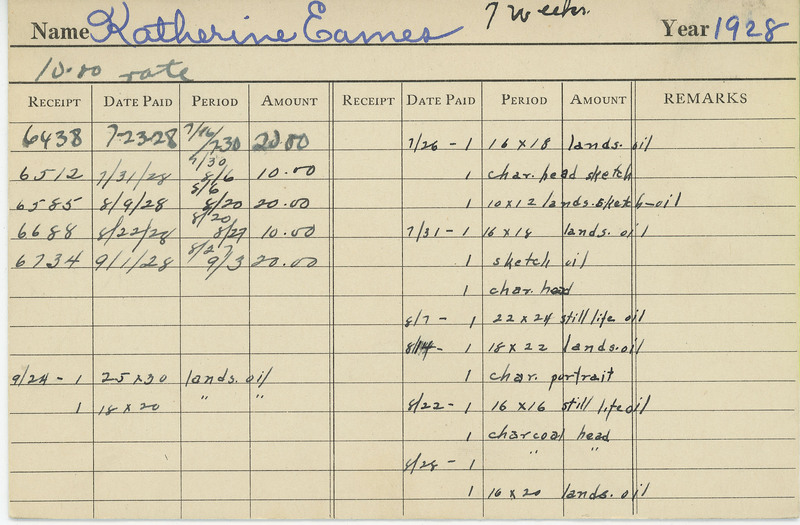 7 weeks.
Name Katherine Eames Year 1928
10.00 rate
RECEIPT DATE PAID PERIOD AMOUNT RECEIPT DATE PAID PERIOD AMOUNT REMARKS
6438 7-23-28 7/16 7/30 20.00
6512 7/31/28 7/30 8/6 10.00
6585 8/9/28 8/6 8/20 20.00
6688 8/22/28 8/20 8/27 10.00
6734 9/1/28 8/27 9/3 20.00
9/24 - 1 25 x 30 lands. oil
1 18 x 20 " "
7/26 - 1 16 x 18 lands. oil
1 char. head sketch
1 10 x 12 lands. sketch - oil
7/31 - 1 16 x 18 lands. oil
1 sketch oil
1 char. head
8/7 - 1 22 x 24 still life oil
8/14 - 1 18 x 22 lands. oil
1 char. portrait
8/22 - 1 16 x 16 still life oil
1 charcoal head
8/28 - 1 " "
1 16 x 20 lands. oil